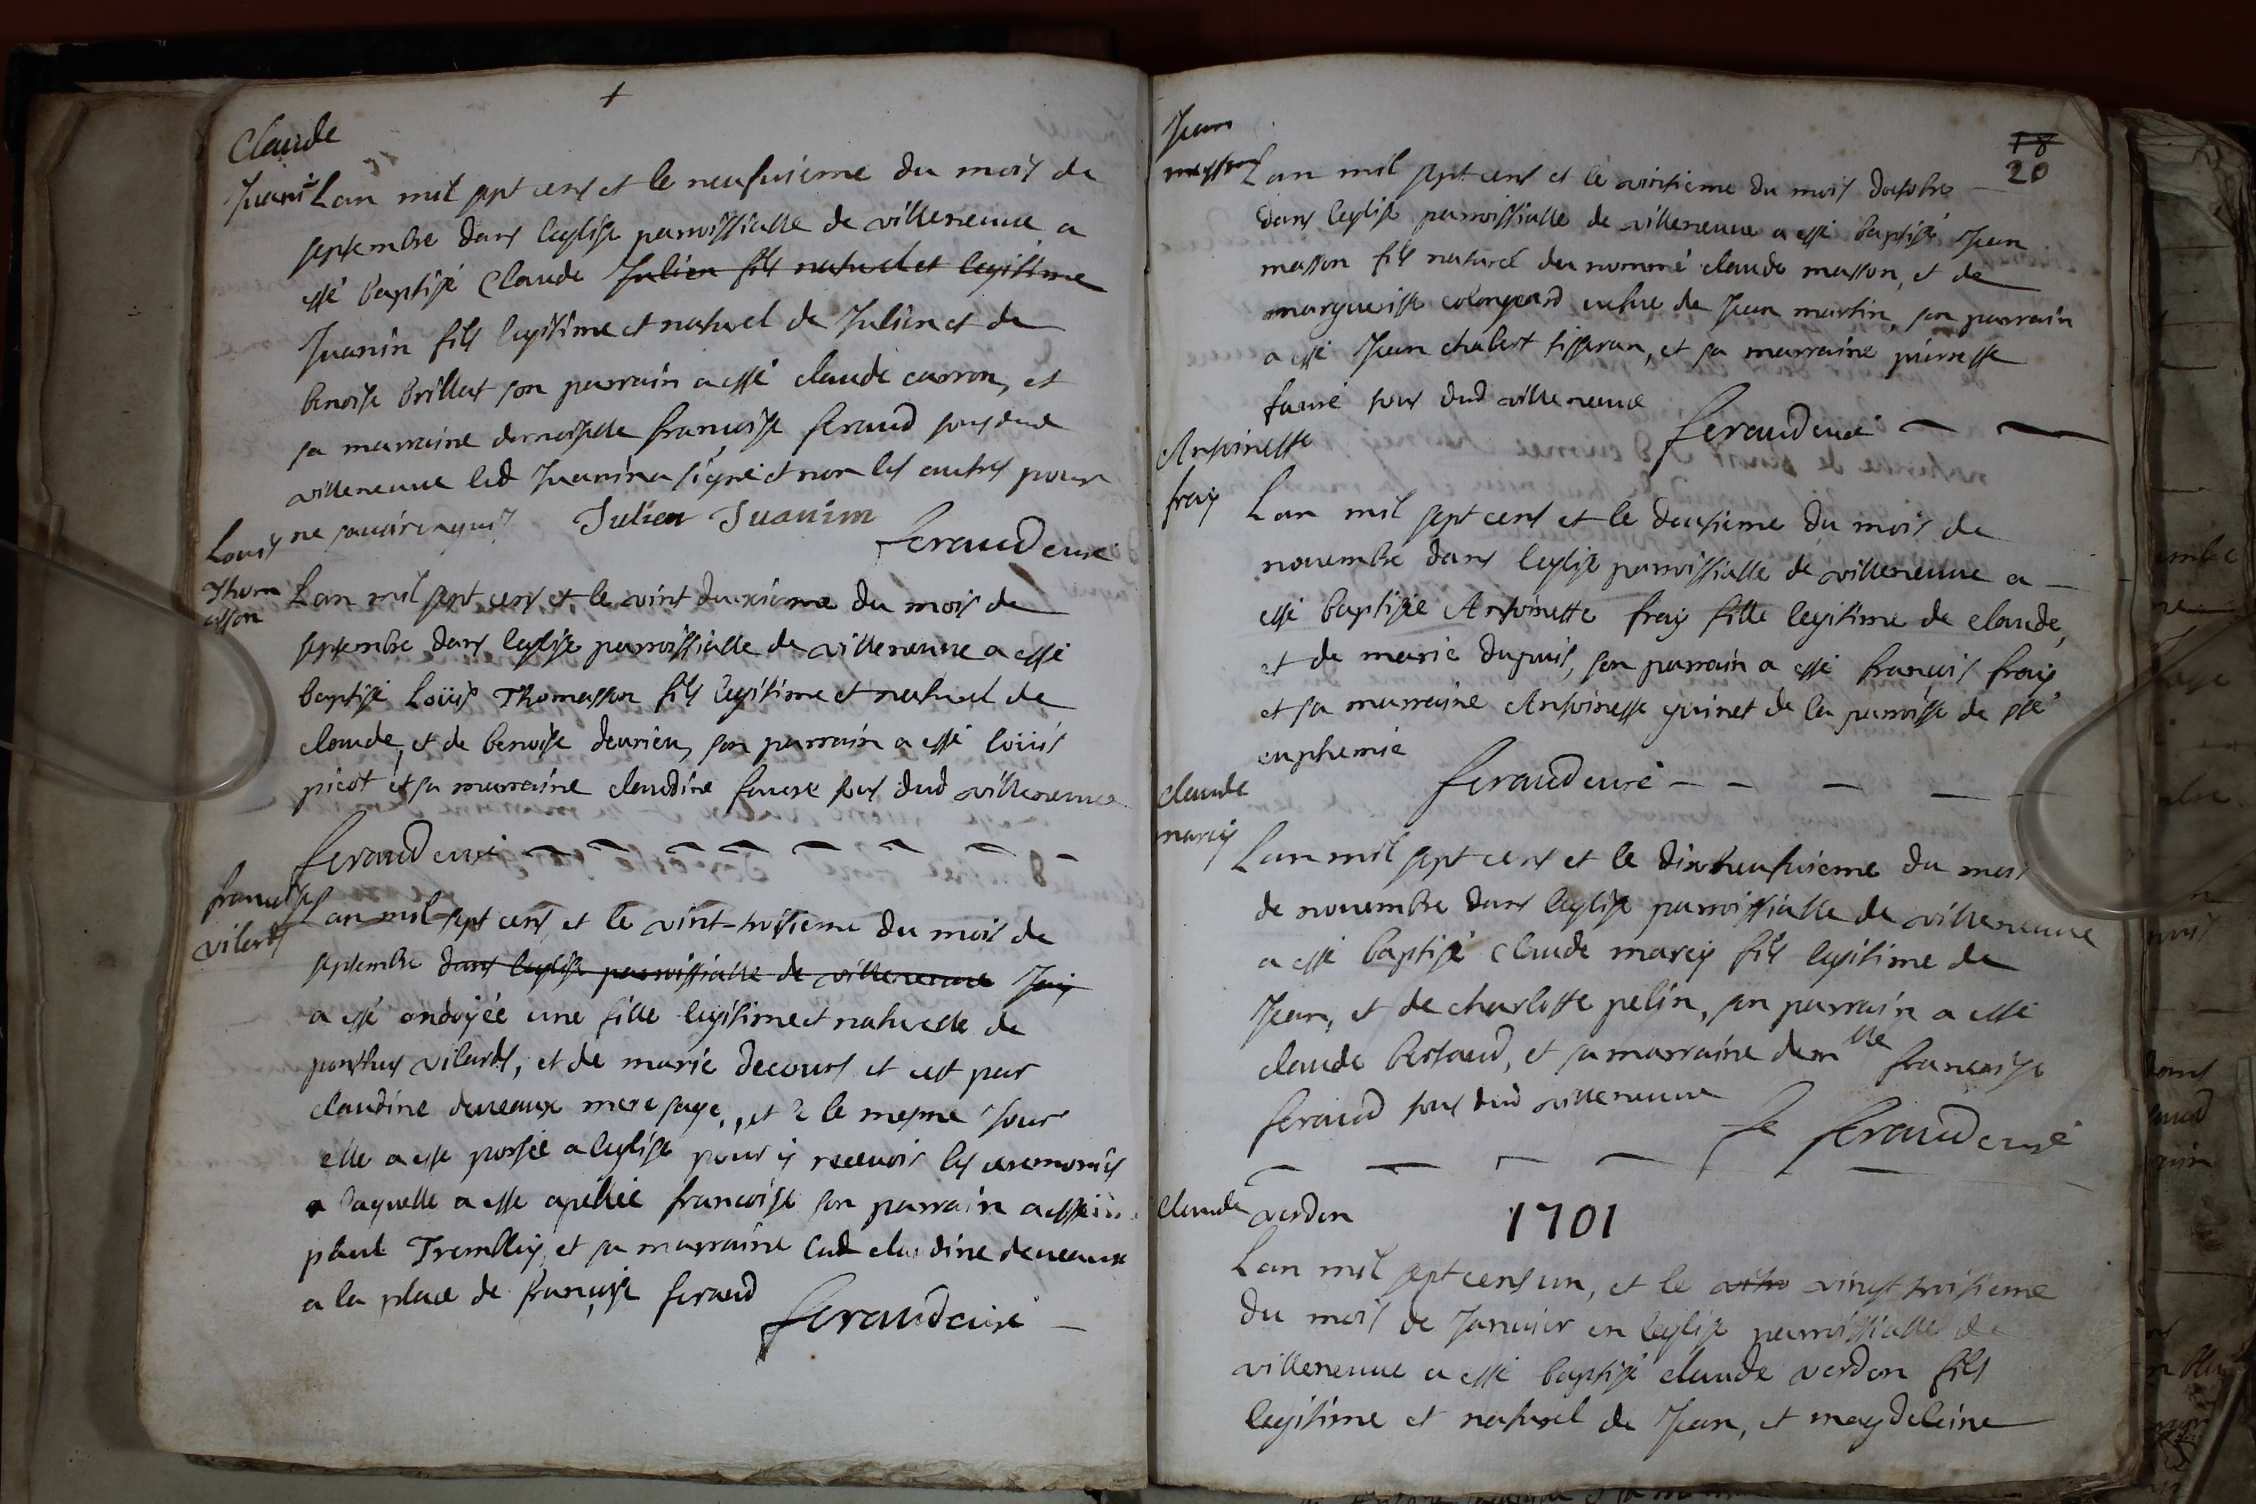 +
Claude
Juanin
Lan mil sept cens et le neufvieme du mois de
septembre dans leglise parroissialle de villeneuve a
esté baptisé Claude Julien fils naturel et legitime
Juanin fils legitime et naturel de Julien et de
benoise brillat son parrain a esté claude carron, et
sa marraine demoiselle francoise feraud tous dud
villeneuve led Juanin a signé et non les autres pour
ne scavoir enquis
Julien Juanin
feraud curé
Louis
Thom
asson
Lan mil sept cens et le vint deuxieme du mois de
septembre dans leglise parroissialle de villeneuve a esté
baptisé Loüis Thomasson fils legitime et naturel de
claude, et de benoise deurieu, son parrain a esté loüis
picot et sa marraine claudine faure tous dud villeneuve
feraud curé
francoise
vilards
Lan mil sept cens et le vint-troisieme du mois de
septembre dans leglise parroissialle de villeneuve
a esté ondoyée une fille legitime et naturelle de
ponthus vilards, et de marie decours et cest par
claudine deveaux mere sage, et le mesme jour
elle a esté portée a leglise pour y recevoir les ceremonies
laquelle a esté apellée francoise son parrain a esté
paul Trembley, et sa marraine lad claudine deveaux
a la place de francoise feraud
feraud curé
18
20
Jean
masson
Lan mil sept cens et le vintieme du mois doctobre
dans leglise parroissialle de villeneuve a esté baptisé Jean
masson fils naturel du nommé claude masson, et de
margueritte colongeard vefve de Jean martin, son parrain
a esté Jean chabert tisseran, et sa marraine pierrette
faure tous dud villeneuve
feraud curé
Antoinette
fray
Lan mil sept cens et le deusieme du mois de
novembre dans leglise parroissialle de villeneuve a
esté baptisée Antoinette fray fille legitime de claude,
et de marie dupuis, son parrain a esté francois fray
et sa marraine Antoinette guinet de la parroisse de ste
euphemie
feraud curé
claude
marey
Lan mil sept cens et le dixneufvieme du mois
de novembre dans leglise parroissialle de villeneuve
a esté baptisé claude marey fils legitime de
Jean, et de charlotte pelin, son parrain a esté
claude bertaud, et sa marraine demlle francoise
feraud tous dud villeneuve
feraud curé
1701
claude verdon
Lan mil sept cens un, et le vingt troisieme
du mois de Janvier en leglise parroissialle de
villeneuve a esté baptisé claude verdon fils
legitime et naturel de Jean, et magdeleine